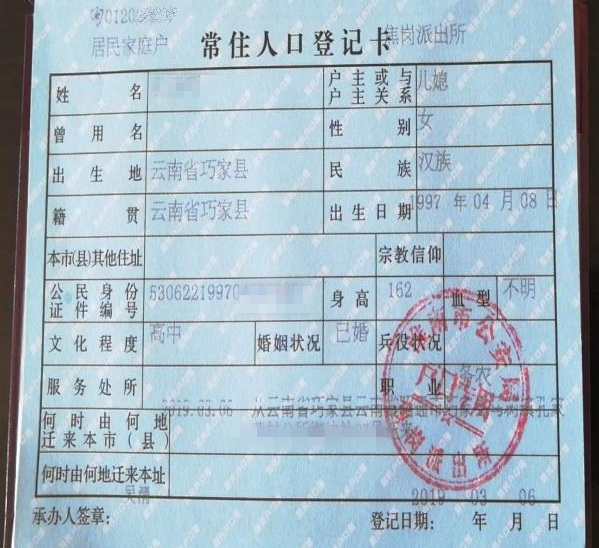 居民家庭户 常住人口登记卡 焦岗派出所
姓名 户主或与户主关系 儿媳
曾用名 性别 女
出生地 云南省巧家县 民族 汉族
籍贯 云南省巧家县 出生日期 1997 年 04 月 08 日
本市(县)其他住址 宗教信仰
公民身份证件编号 53062219970 身高 162 血型 不明
文化程度 高中 婚姻状况 已婚 兵役状况
服务处所 职业 务农
何时由何地迁来本市(县) 2019.03.06 从云南省巧家县云南省昭通市巧家
何时由何地迁来本址
承办人签章: 登记日期: 2019 年 03 月 06 日